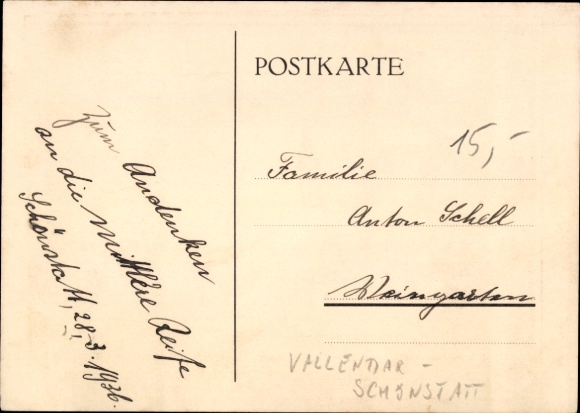 Zum Andenken
an die mittlere Reife
Schönstatt, 28.3.1936.
POSTKARTE
15,-
Familie
Anton Schell
Weingarten
VALLENDAR -
SCHÖNSTATT